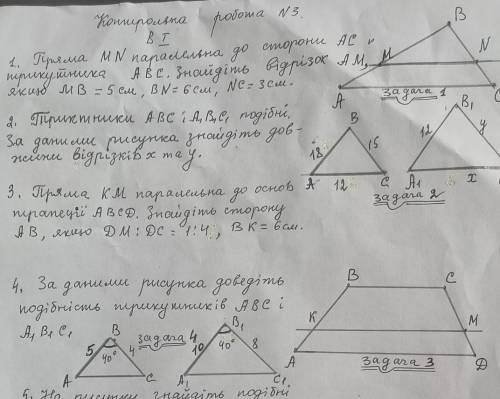 Контрольна робота №3.
В I
1. Пряма MN паралельна до сторони AC
трикутника ABC. Знайдіть відрізок AM,
якщо MB = 5см, BN = 6см, NC = 3см.
B
M
N
A
C
Задача 1
2. Трикутники ABC і A₁B₁C₁ подібні.
За даними рисунка знайдіть дов-
жини відрізків x та y.
B
18
15
A
12
C
B₁
12
y
A₁
x
Задача 2
3. Пряма KM паралельна до основ
трапеції ABCD. Знайдіть сторону
AB, якщо DM : DC = 1:4, BK = 6см.
B
C
K
M
A
D
Задача 3
4. За даними рисунка доведіть
подібність трикутників ABC і
A₁B₁C₁
Задача 4
B
5
40°
4
A
C
B₁
10
40°
8
A₁
C₁
5. На рисунку знайдіть подібні